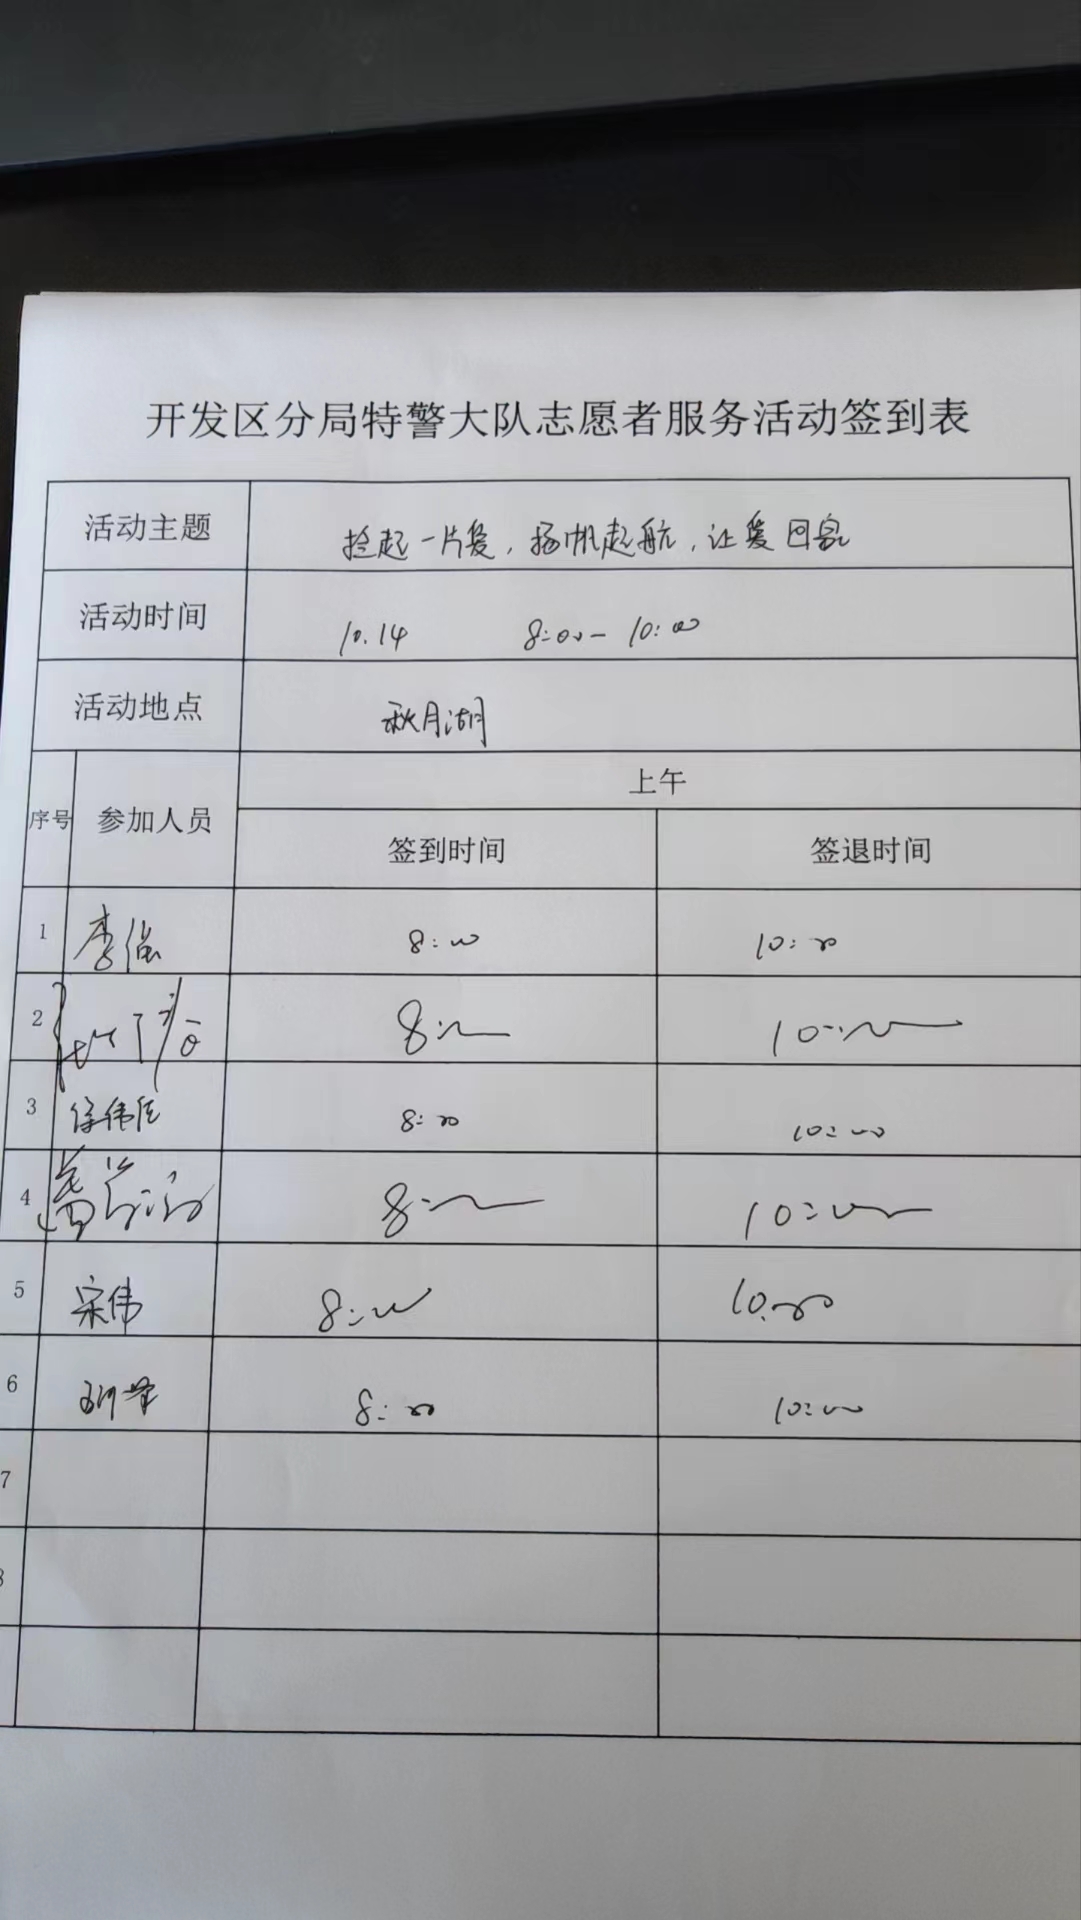 开发区分局特警大队志愿者服务活动签到表
活动主题 捡起一片爱，扬帆起航，让爱回家
活动时间 10.14 8:00-10:00
活动地点 秋月湖
上午
序号 参加人员 签到时间 签退时间
1 李强 8:00 10:00
2 8:00 10:00
3 徐伟 8:00 10:00
4 8:00 10:00
5 宋伟 8:00 10:00
6 8:00 10:00
7
8